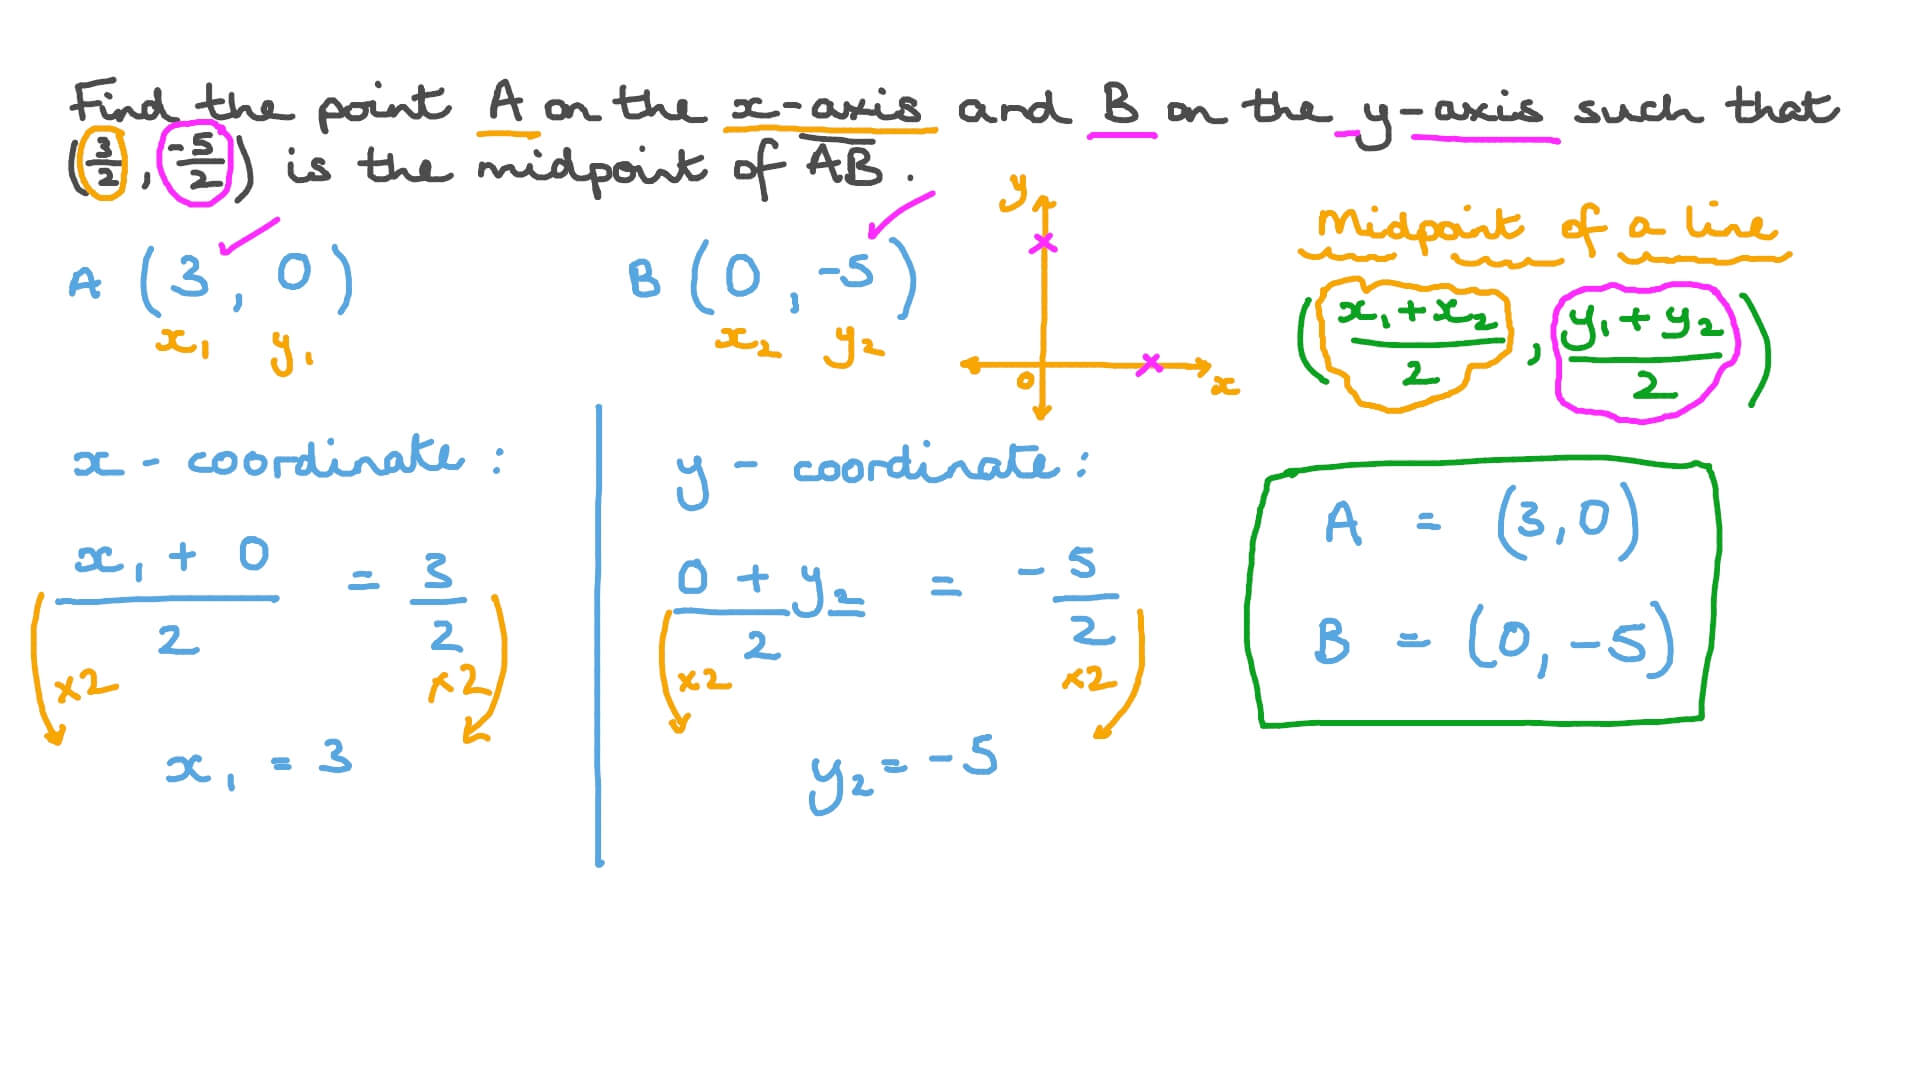 Find the point A on the x-axis and B on the y-axis such that
(3/2, -5/2) is the midpoint of AB.
A (3, 0)
x₁ y₁
B (0, -5)
x₂ y₂
y
0
x
Midpoint of a line
(x₁+x₂/2, y₁+y₂/2)
x-coordinate:
x₁ + 0/2 = 3/2
×2 ×2
x₁ = 3
y-coordinate:
0 + y₂/2 = -5/2
×2 ×2
y₂ = -5
A = (3,0)
B = (0,-5)